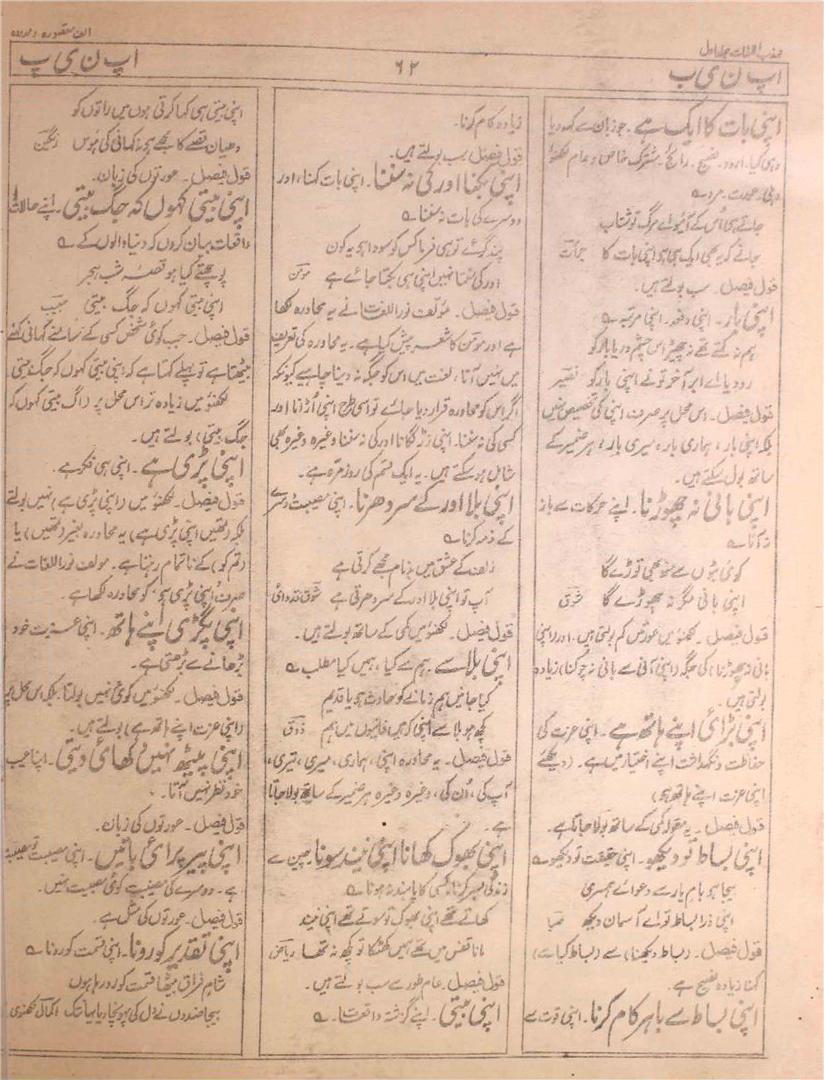 مہذب اللغات جلد اول
الف مقصورہ و ممدودہ
اپ ن ی ب
۶۲
اپ ن ی پ
اپنی بات کا ایک ہے۔ جو زبان سے کہہ دیا
وہی کیا۔ اردو۔ فصیح۔ رائج۔ مشترک خاص و عام لکھنؤ
دہلی۔ عورت۔ مرد۔
جاتے ہی اُس کے آئیو اے مرگ تو شتاب
جانے کہ یہ بھی ایک ہی ہو اپنی بات کا جرأت
قول فیصل۔ سب بولتے ہیں۔
اپنی بار۔ اپنی دفعہ۔ اپنی مرتبہ ے
ہم نہ کہتے تھے نہ چھیڑ اس چشمِ دریا بار کو
رو دیا اے ابر آخر تو نے اپنی بار کو نصیر
قول فیصل۔ اس محل پر صرف اپنی کی تخصیص نہیں
بلکہ اپنی بار، ہماری بار، میری بار، ہر ضمیر کے
ساتھ بول سکتے ہیں۔
اپنی بانی نہ چھوڑنا۔ اپنے حرکات سے باز
نہ آنا ے
کوئی بتوں سے منھ بھی توڑے گا
اپنی بانی مگر نہ چھوڑے گا شوق
قول فیصل۔ لکھنؤ میں عورتیں کم بولتی ہیں۔ اور (اپنی
بانی نہ چھوڑنا) کی جگہ (اپنی آنی سے بانی نہ چوکنا) زیادہ
بولتی ہیں۔
اپنی بڑائی اپنے ہاتھ ہے۔ اپنی عزت کی
حفاظت و نگہداشت اپنے اختیار میں ہے۔ (دیکھئے
اپنی عزت اپنے ہاتھ ہے)
قول فیصل۔ یہ مقولہ کمی کے ساتھ بولا جاتا ہے۔
اپنی بساط تو دیکھو۔ اپنی حقیقت تو دیکھو ے
بیجا ہو بامِ یار سے دعوائے ہمسری
اپنی ذرا بساط تو اے آسمان دیکھ ضیا
قول فیصل۔ (بساط دیکھنا) سے (بساط کیا ہے)
کہنا زیادہ فصیح ہے۔
اپنی بساط سے باہر کام کرنا۔ اپنی قوت سے
زیادہ کام کرنا۔
قول فیصل۔ سب بولتے ہیں۔
اپنی بکنا اور کی نہ سننا۔ اپنی بات کہنا، اور
دوسرے کی بات نہ سننا ے
پند گوئے تو ہی فرما کس کو سودا ہو یہ کون
اور کی سنتا نہیں اپنی ہی بکتا جائے ہے مومن
قول فیصل۔ مؤلف نور اللغات نے یہ محاورہ لکھا
ہے اور مومن کا شعر پیش کیا ہے۔ یہ محاورہ کی تعریف
میں نہیں آتا، لغت میں اس کو جگہ نہ دینا چاہیے کیونکہ
اگر اس کو محاورہ قرار دیا جائے تو اسی طرح اپنی اُڑانا اور
کسی کی نہ سننا۔ اپنی رٹ لگانا اور کی نہ سننا وغیرہ وغیرہ بھی
شامل ہو سکتے ہیں۔ یہ ایک قسم کی روزمرہ ہے۔
اپنی بلا اور کے سر دھرنا۔ اپنی مصیبت دوسرے
کے ذمہ کرنا ے
زلف کے عشق میں بدنام مجھے کرتی ہے
آپ تو اپنی بلا اور کے سر دھرتی ہے شوق قدوائی
قول فیصل۔ لکھنؤ میں کمی کے ساتھ بولتے ہیں۔
اپنی بلا سے۔ ہم سے کیا، ہمیں کیا مطلب ے
کیا جانیں ہم زمانے کو حادث ہو یا قدیم
کچھ ہو بلا سے اپنی کہ ہیں فانیوں میں ہم ذوق
قول فیصل۔ یہ محاورہ اپنی، ہماری، میری، تیری،
آپ کی، اُن کی، وغیرہ وغیرہ ہر ضمیر کے ساتھ بولا جاتا
ہے۔
اپنی بھوک کھانا اپنی نیند سونا۔ چین سے
زندگی بسر کرنا، کسی کا پابند نہ ہونا ے
کھاتے تھے اپنی بھوک تو سوتے تھے اپنی نیند
مانا قفس میں تھے ہمیں کھٹکا تو کچھ نہ تھا ریاض
قول فیصل۔ عام طور سے سب بولتے ہیں۔
اپنی بیتی۔ اپنے گزشتہ واقعات۔ ے
اپنی بیتی ہی کہا کرتی ہوں میں راتوں کو
دھیان قصے کا مجھے ہے نہ کہانی کی ہوس رنگین
قول فیصل۔ عورتوں کی زبان۔
اپنی بیتی کہوں کہ جگ بیتی۔ اپنے حالات
واقعات بیان کروں کہ دنیا والوں کے ے
پوچھتے کیا ہو قصۂ شبِ ہجر
اپنی بیتی کہوں کہ جگ بیتی حبیب
قول فیصل۔ جب کوئی شخص کسی کے سامنے کہانی کہنے
بیٹھتا ہے تو پہلے کہتا ہے کہ، اپنی بیتی کہوں کہ جگ بیتی
لکھنؤ میں زیادہ تر اس محل پر (آپ بیتی کہوں کہ
جگ بیتی) بولتے ہیں۔
اپنی پڑی ہے۔ اپنی ہی فکر ہے۔
قول فیصل۔ لکھنؤ میں (اپنی پڑی ہے) نہیں بولتے
بلکہ (تمھیں اپنی پڑی ہے) یہ محاورہ بغیر (تمھیں) یا
(تم کو) کے ناتمام رہتا ہے۔ مولف نور اللغات نے
صرف (اپنی پڑی ہے) کو محاورہ لکھا ہے۔
اپنی پگڑی اپنے ہاتھ۔ اپنی عزت خود
بڑھانے سے بڑھتی ہے۔
قول فیصل۔ لکھنؤ میں کوئی نہیں بولتا۔ بلکہ اس محل پر
(اپنی عزت اپنے ہاتھ ہے) بولتے ہیں۔
اپنی پیٹھ نہیں دکھائی دیتی۔ اپنا عیب
خود نظر نہیں آتا۔
قول فیصل۔ عورتوں کی زبان۔
اپنی پیر پرائی باتیں۔ اپنی مصیبت تو مصیبت
ہے۔ دوسرے کی مصیبت کوئی مصیبت نہیں۔
قول فیصل۔ عورتوں کی مثل ہے۔
اپنی تقدیر کو رونا۔ اپنی قسمت کو رونا ے
شامِ فراق بیٹھا قسمت کو رو رہا ہوں
بیجا ضدوں نے دل کی پہونچا دیا یہاں تک